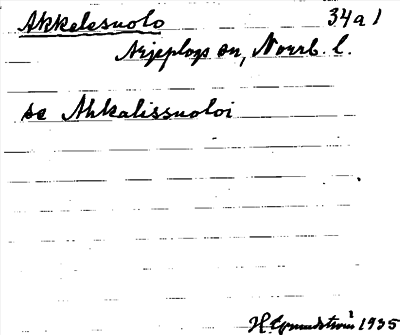 Akkelesuolo 34a1
Arjeplogs sn, Norrb. l.
se Ahkalissuoloi
H Grundström 1935